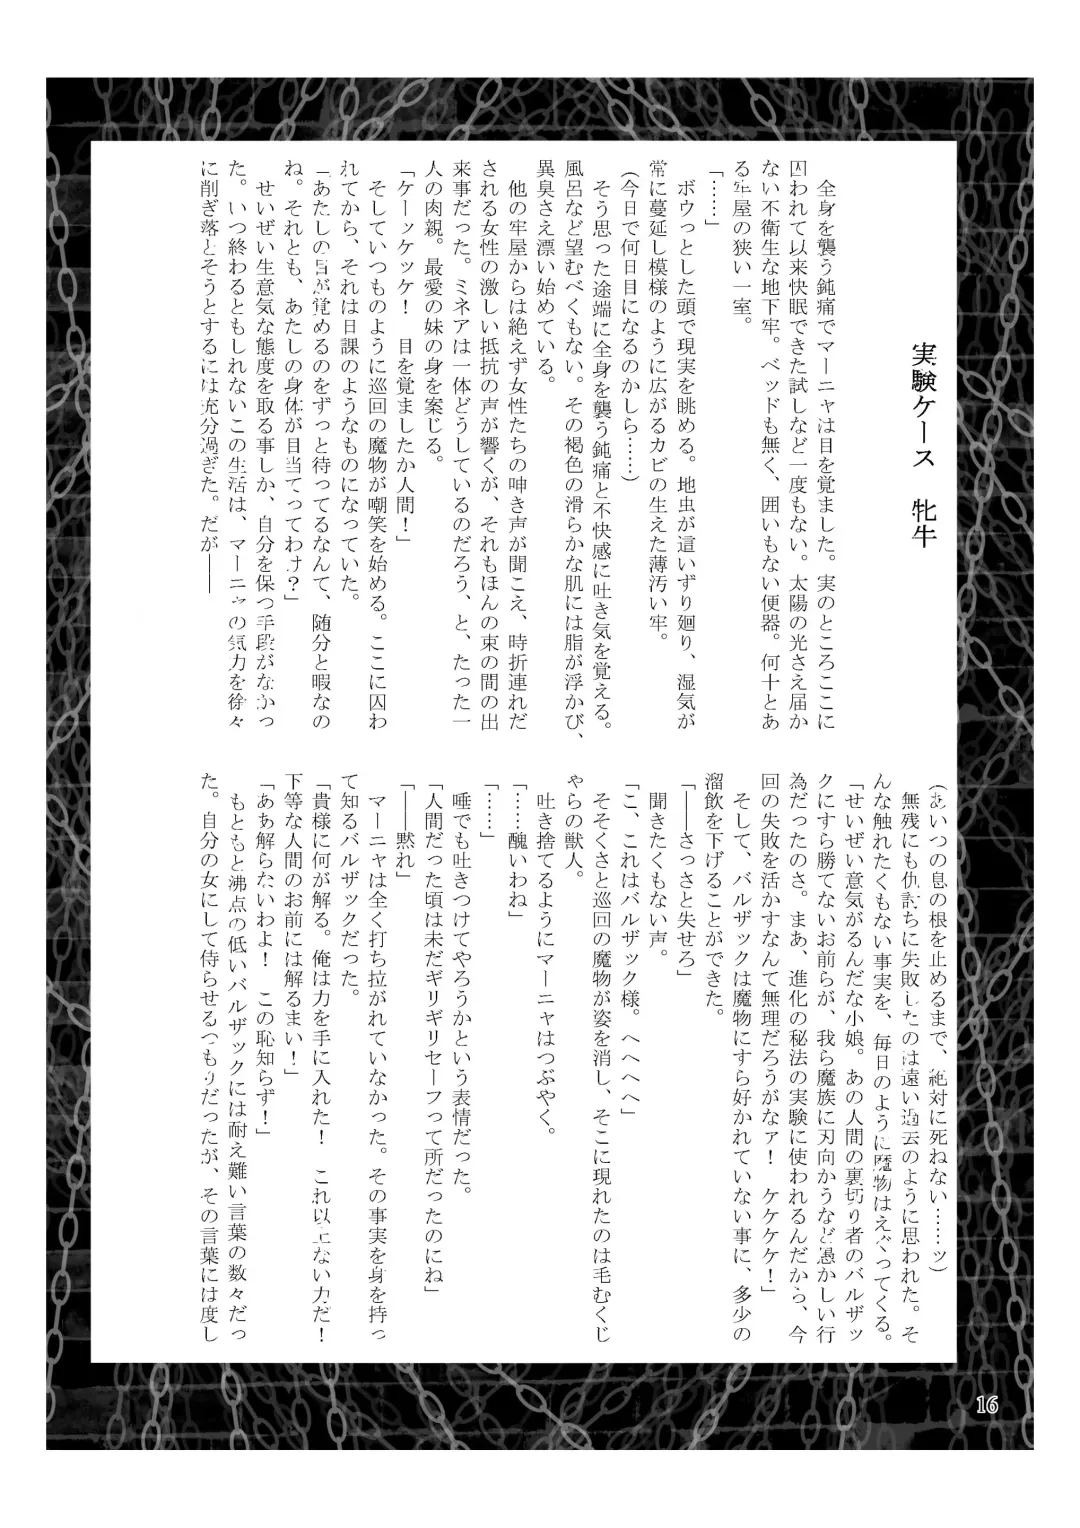 実験ケース　牝牛
全身を襲う鈍痛でマーニャは目を覚ました。実のところここに
囚われて以来快眠できた試しなど一度もない。太陽の光さえ届か
ない不衛生な地下牢。ベッドも無く、囲いもない便器。何十とあ
る牢屋の狭い一室。
「……」
ボウっとした頭で現実を眺める。地虫が這いずり廻り、湿気が
常に蔓延し模様のように広がるカビの生えた薄汚い牢。
(今日で何日目になるのかしら……)
そう思った途端に全身を襲う鈍痛と不快感に吐き気を覚える。
風呂など望むべくもない。その褐色の滑らかな肌には脂が浮かび、
異臭さえ漂い始めている。
他の牢屋からは絶えず女性たちの呻き声が聞こえ、時折連れだ
される女性の激しい抵抗の声が響くが、それもほんの束の間の出
来事だった。ミネアは一体どうしているのだろう、と、たった一
人の肉親。最愛の妹の身を案じる。
「ケーッケッケ！　目を覚ましたか人間！」
そしていつものように巡回の魔物が嘲笑を始める。ここに囚わ
れてから、それは日課のようなものになっていた。
「あたしの目が覚めるのをずっと待ってるなんて、随分と暇なの
ね。それとも、あたしの身体が目当てってわけ？」
せいぜい生意気な態度を取る事しか、自分を保つ手段がなかっ
た。いつ終わるともしれないこの生活は、マーニャの気力を徐々
に削ぎ落とそうとするには充分過ぎた。だが――
(あいつの息の根を止めるまで、絶対に死ねない……ッ)
無残にも仇討ちに失敗したのは遠い過去のように思われた。そ
んな触れたくもない事実を、毎日のように魔物はえぐってくる。
「せいぜい意気がるんだな小娘。あの人間の裏切り者のバルザッ
クにすら勝てないお前らが、我ら魔族に刃向かうなど愚かしい行
為だったのさ。まあ、進化の秘法の実験に使われるんだから、今
回の失敗を活かすなんて無理だろうがなァ！　ケケケケ！」
そして、バルザックは魔物にすら好かれていない事に、多少の
溜飲を下げることができた。
「――さっさと失せろ」
聞きたくもない声。
「こ、これはバルザック様。へへへへ」
そそくさと巡回の魔物が姿を消し、そこに現れたのは毛むくじ
ゃらの獣人。
吐き捨てるようにマーニャはつぶやく。
「……醜いわね」
「……」
唾でも吐きつけてやろうかという表情だった。
「人間だった頃は未だギリギリセーフって所だったのにね」
「――黙れ」
マーニャは全く打ち拉がれていなかった。その事実を身を持っ
て知るバルザックだった。
「貴様に何が解る。俺は力を手に入れた！　これ以上ない力だ！
下等な人間のお前には解るまい！」
「ああ解らないわよ！　この恥知らず！」
もともと沸点の低いバルザックには耐え難い言葉の数々だっ
た。自分の女にして侍らせるつもりだったが、その言葉には度し
16